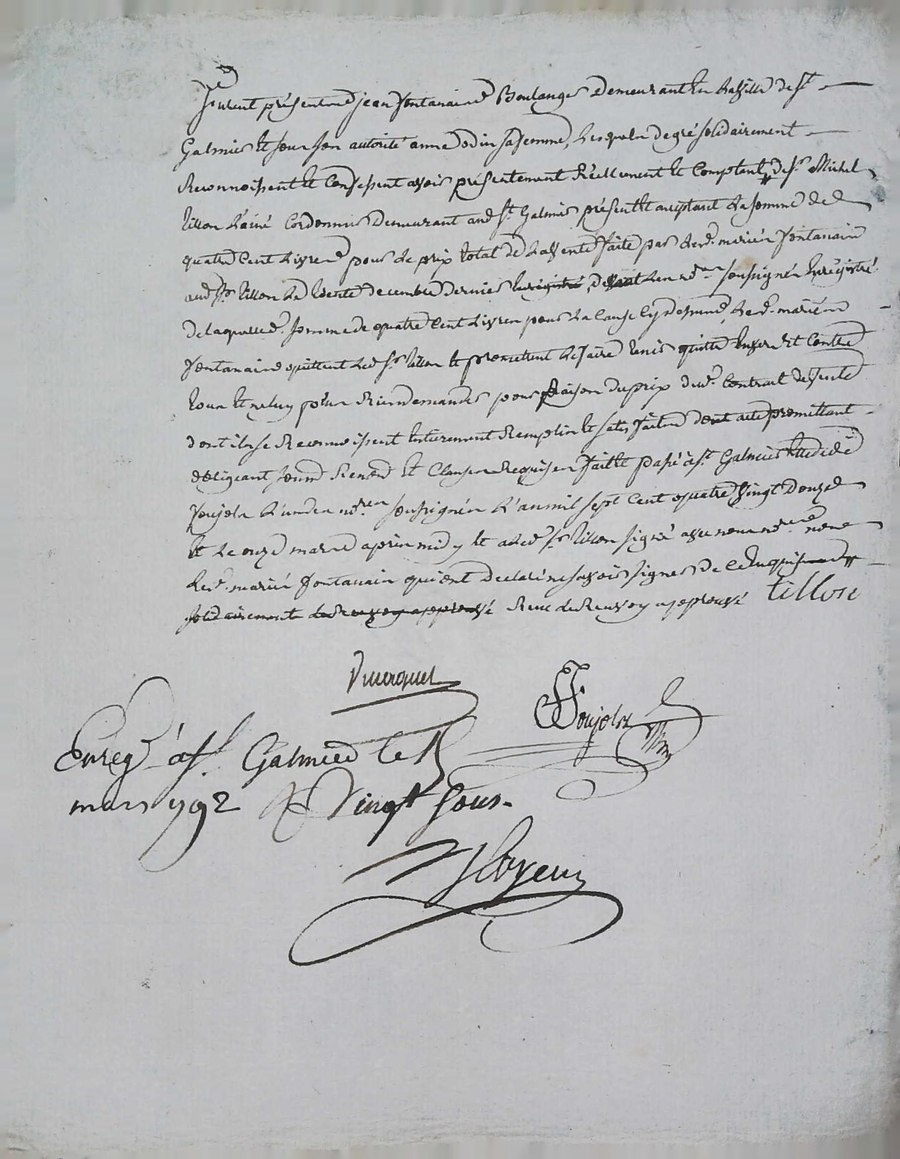 furent présents jean fontanaire Boulanger Demeurant en la ville de St
Galmier et sous son autorité anne odin sa femme, lesquels de gré solidairement
Reconnoissent et Confessent avoir présentement Réellement et Comptant de Sr Michel
tillon L'ainé Cordonnier Demeurant aud St Galmier présent et acceptant La somme de
quatre Cent Livres pour Le prix total de La vente faite par Lesd. mariés fontanaire
aud Sr tillon Le trente decembre dernier devant Les nres soussignés Enrégistré
de laquelle somme de quatre Cent Livres pour La Cause Cy dessus, Lesd. mariés
fontanaire quittent Led Sr tillon et promettent Le faire tenir quitte Envers Et Contre
tous et ne luy plus Rien demander pour Raison du prix dud. Contrat de vente
dont ils se Reconnoissent Entierement Remplis et satisfaits dont acte promettant
obligeant soumt Renont Et Clauses Requises fait et passé à St Galmier Etude de
Joujole L'un des nres soussignés L'an mil sept Cent quatre vingt douze
et Le onze mars après midy et a Led Sr tillon signé avec nous nres non
Lesd. mariés fontanaire qui ont Declaré ne savoir signer de ce Enquis
solidairement Renc de Renvoy approuvé tillon
Joujole
Enregé à St Galmier le
mars 1792 R Vingt sous